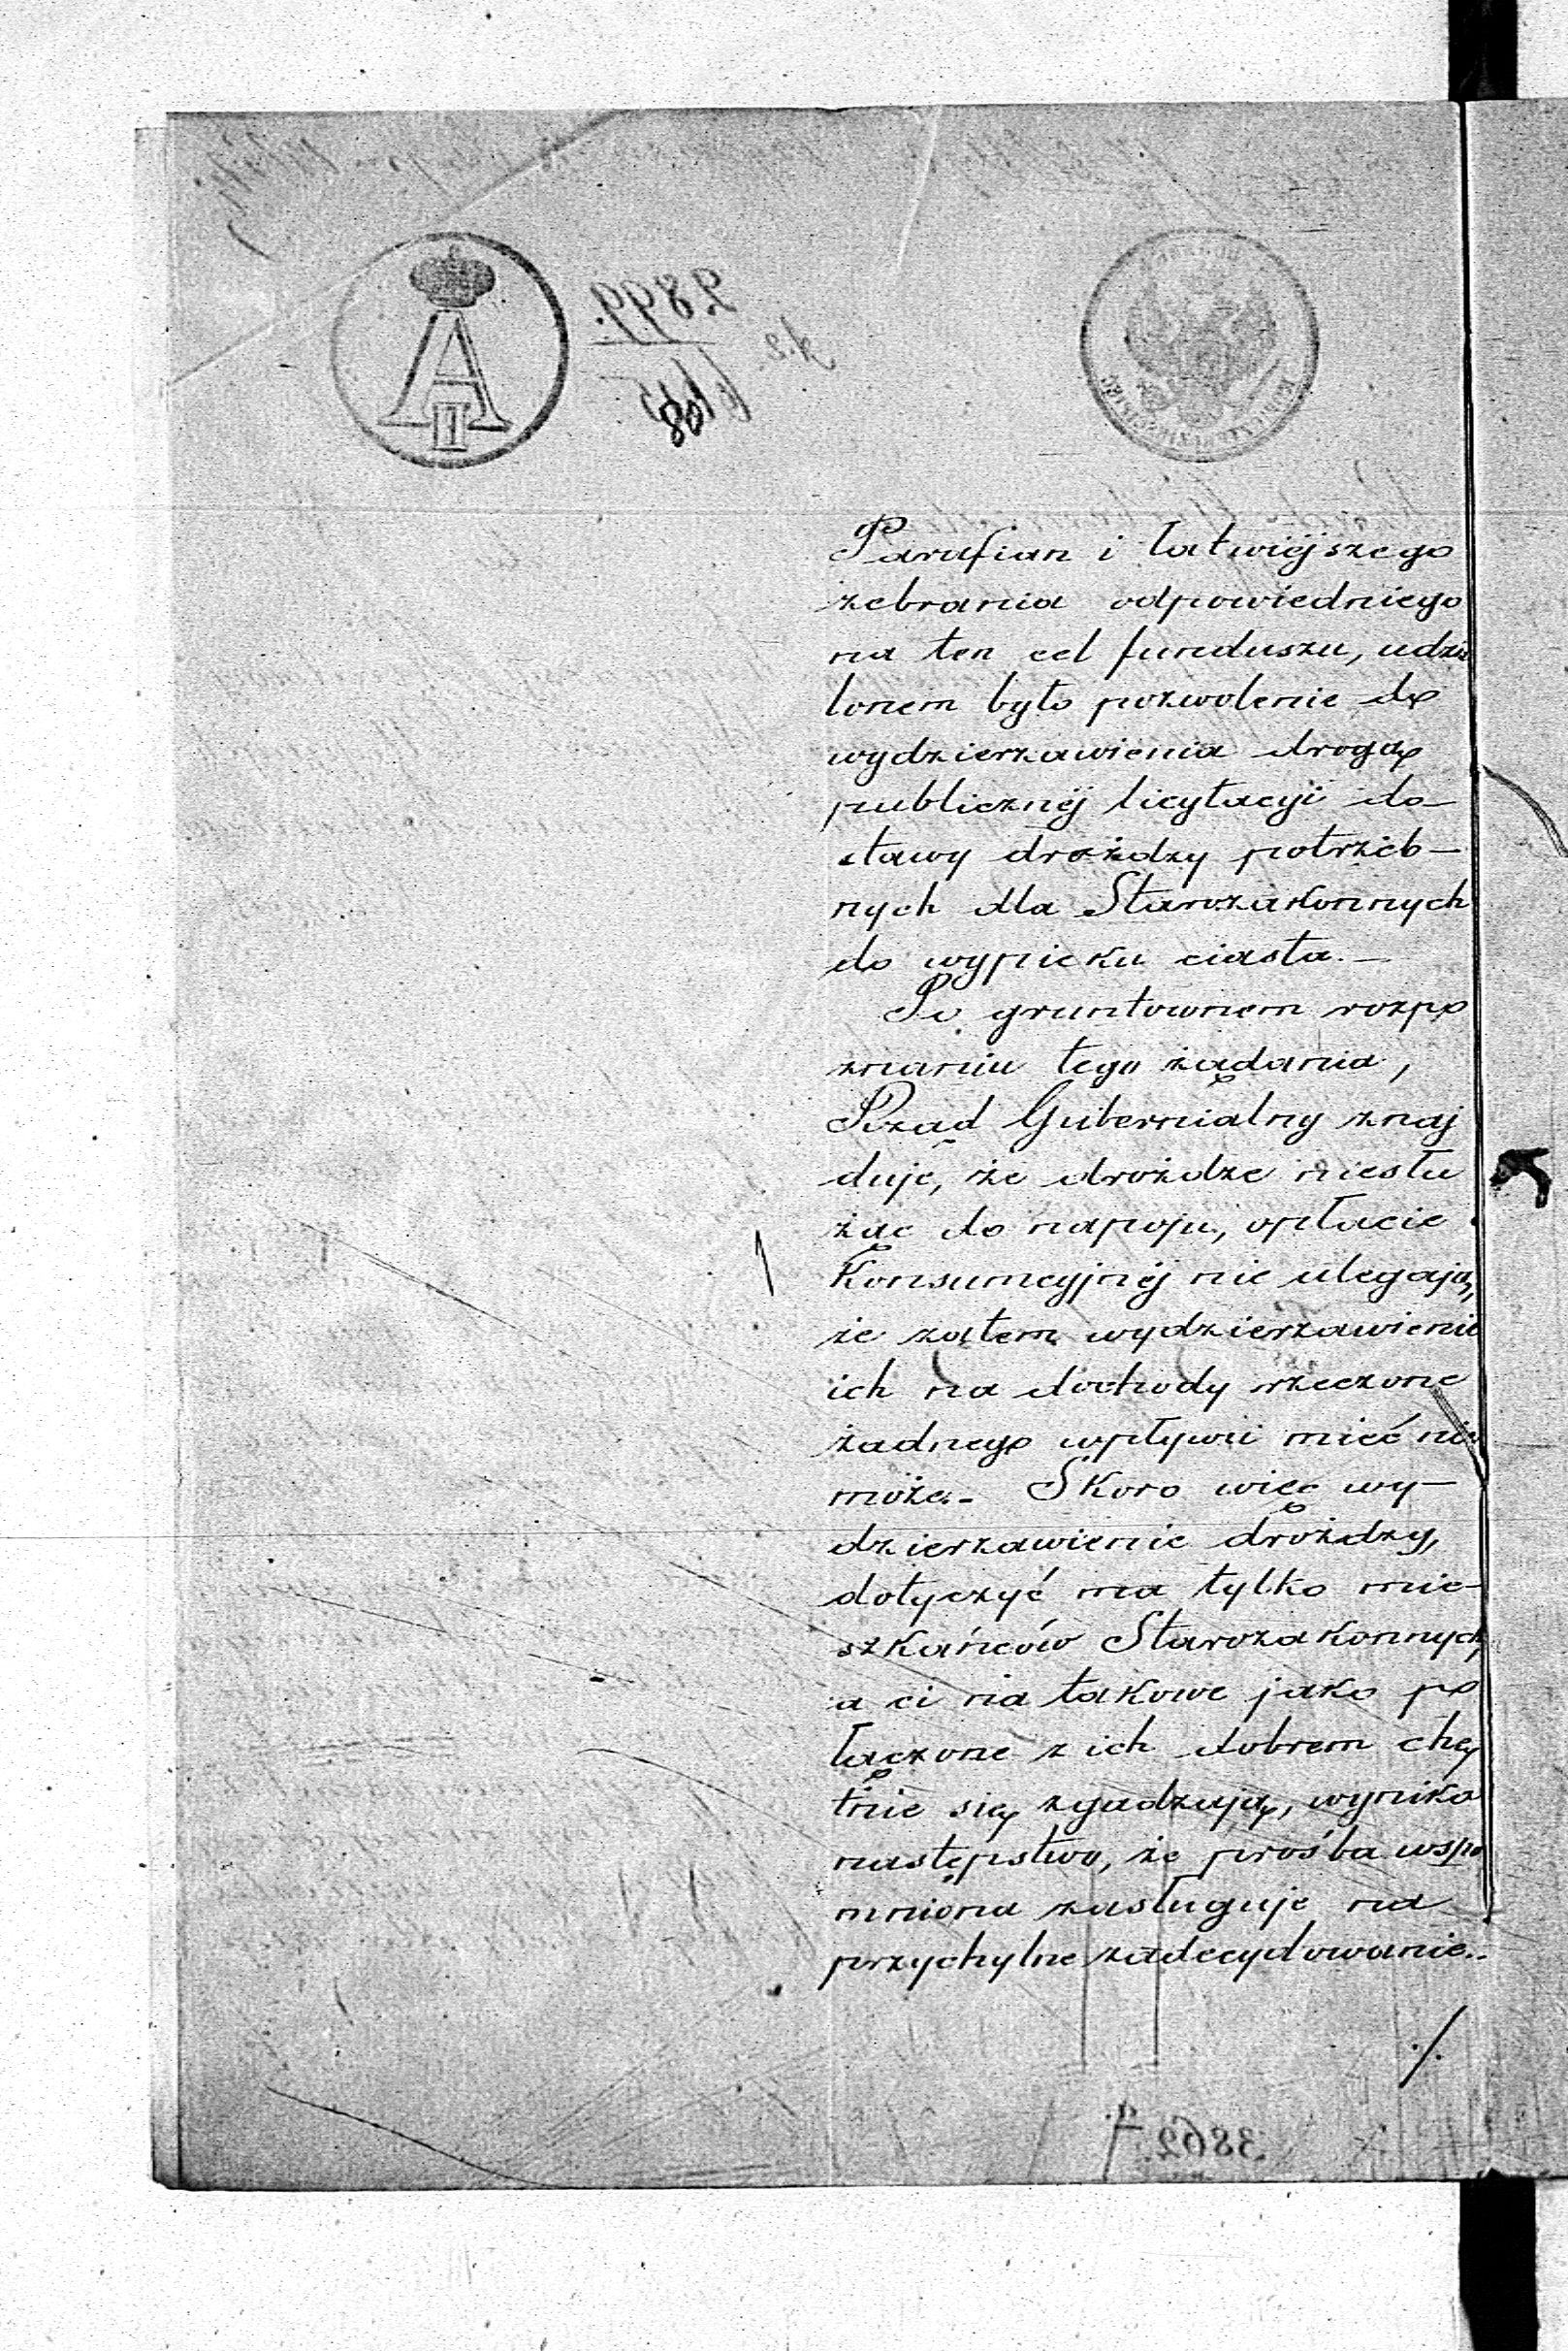 A
II
Parafian i łatwiejszego
zebrania odpowiedniego
na ten cel funduszu, udzie
lonem było pozwolenie do
wydzierzawienia drogą
publicznéj licytacyi do-
stawy drożdzy potrzeb-
nych dla Starozakonnych
do wypieku ciasta.-
Po gruntownem rozpo
znaniu tego żądania,
Rząd Gubernialny znaj
duje, że drożdze niesłu
żąc do napoju, opłacie
Konsumcyjnéj nie ulegają,
że zatem wydzierzawienie
ich na dochody rzeczone
żadnego wpływu mieć nie
może.- Skoro więc wy-
dzierzawienie drożdzy,
dotyczyć ma tylko mie-
szkańców Starozakonnych,
a ci na takowe jako po
łączone z ich dobrem chę
tnie się zgadzają, wynika
następstwo, że prośba wspo
mniona zasługuje na
przychylne zadecydowanie..
./.